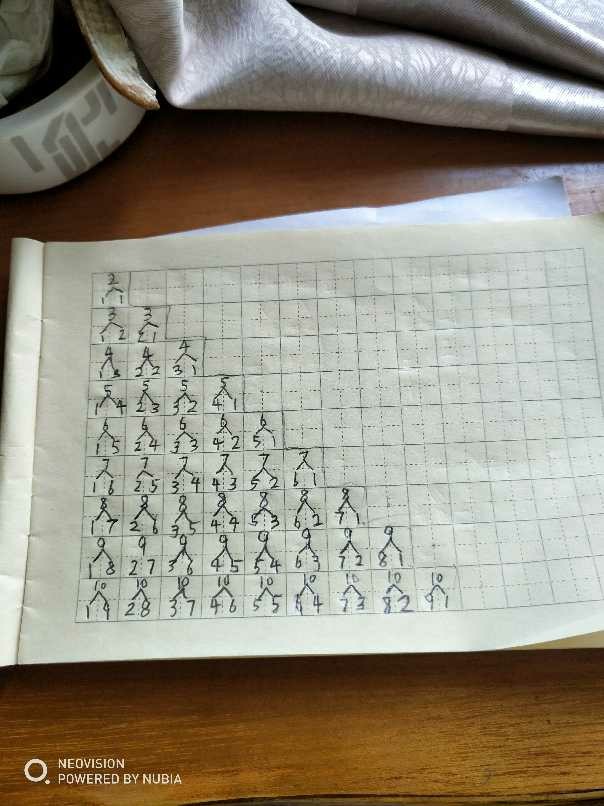 2
1 1
3 3
1 2 2 1
4 4 4
1 3 2 2 3 1
5 5 5 5
1 4 2 3 3 2 4 1
6 6 6 6 6
1 5 2 4 3 3 4 2 5 1
7 7 7 7 7 7
1 6 2 5 3 4 4 3 5 2 6 1
8 8 8 8 8 8 8
1 7 2 6 3 5 4 4 5 3 6 2 7 1
9 9 9 9 9 9 9 9
1 8 2 7 3 6 4 5 5 4 6 3 7 2 8 1
10 10 10 10 10 10 10 10 10
1 9 2 8 3 7 4 6 5 5 6 4 7 3 8 2 9 1
NEOVISION
POWERED BY NUBIA